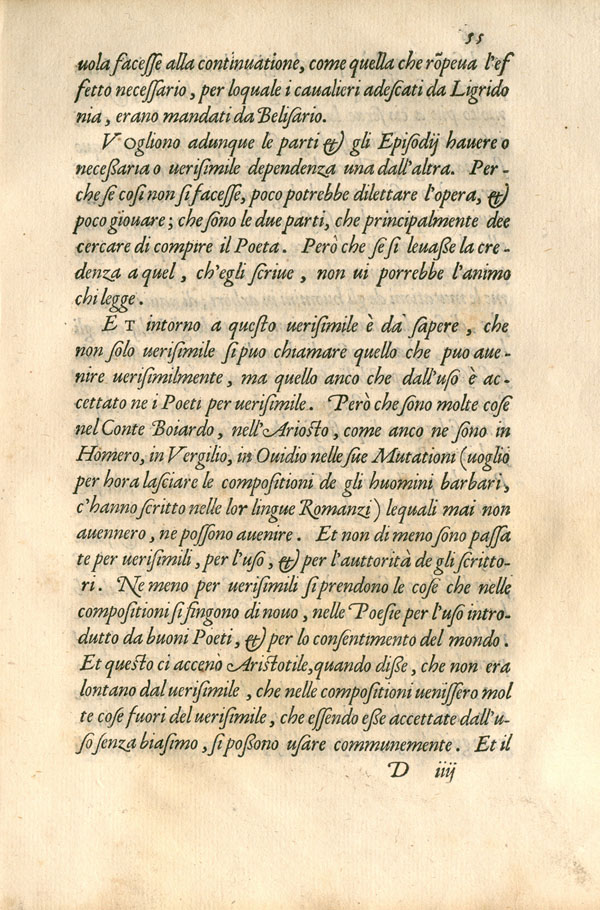 55
uola facesse alla continuatione, come quella che rõpeua l'ef
fetto necessario, per loquale i caualieri adescati da Ligrido
nia, erano mandati da Belisario.
VOgliono adunque le parti & gli Episodij hauere o
necessaria o uerisimile dependenza una dall'altra. Per-
che se cosi non si facesse, poco potrebbe dilettare l'opera, &
poco giouare; che sono le due parti, che principalmente dee
cercare di compire il Poeta. Però che se si leuasse la cre-
denza a quel, ch'egli scriue, non ui porrebbe l'animo
chi legge.
ET intorno a questo uerisimile è dà sapere, che
non solo uerisimile si puo chiamare quello che puo aue-
nire uerisimilmente, ma quello anco che dall'uso è ac-
cettato ne i Poeti per uerisimile. Però che sono molte cose
nel Conte Boiardo, nell'Ariosto, come anco ne sono in
Homero, in Vergilio, in Ouidio nelle sue Mutationi (uoglio
per hora lasciare le compositioni de gli huomini barbari,
c'hanno scritto nelle lor lingue Romanzi) lequali mai non
auennero, ne possono auenire. Et non di meno sono passa
te per uerisimili, per l'uso, & per l'auttorità de gli scritto-
ri. Ne meno per uerisimili si prendono le cose che nelle
compositioni si fingono di nouo, nelle Poesie per l'uso intro-
dutto da buoni Poeti, & per lo consentimento del mondo.
Et questo ci accenò Aristotile, quando disse, che non era
lontano dal uerisimile, che nelle compositioni uenissero mol
te cose fuori del uerisimile, che essendo esse accettate dall'u-
so senza biasimo, si possono usare communemente. Et il
D iiij